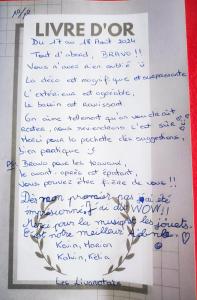 LIVRE D'OR
Du 17 au 18 Août 2024
Tout d'abord, BRAVO !!
Vous n'avez rien oublié
La déco est magnifique et surprenante
L'extérieur est agréable,
Le bassin est ravissant.
On aime tellement qu'on voudrait
rester, nous reviendrons c'est sûr
Merci pour la pochette des suggestions,
pratique
PS: Bravo pour les travaux,
le avant-après est épatant,
Vous pouvez être fière de vous !!
Dès mon premier pas j'ai été
impressionné j'ai dit WOW!!
Merci pour la musique, les jouets.
C'est notre meilleur
Kévin, Marion
Kelvin, Kélia
Les